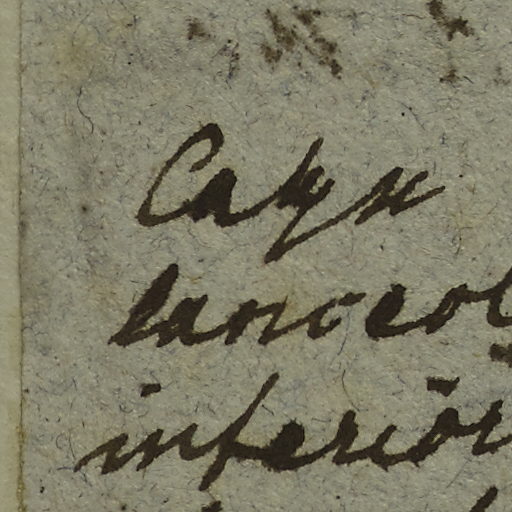 Calyx
lanceol
inferior